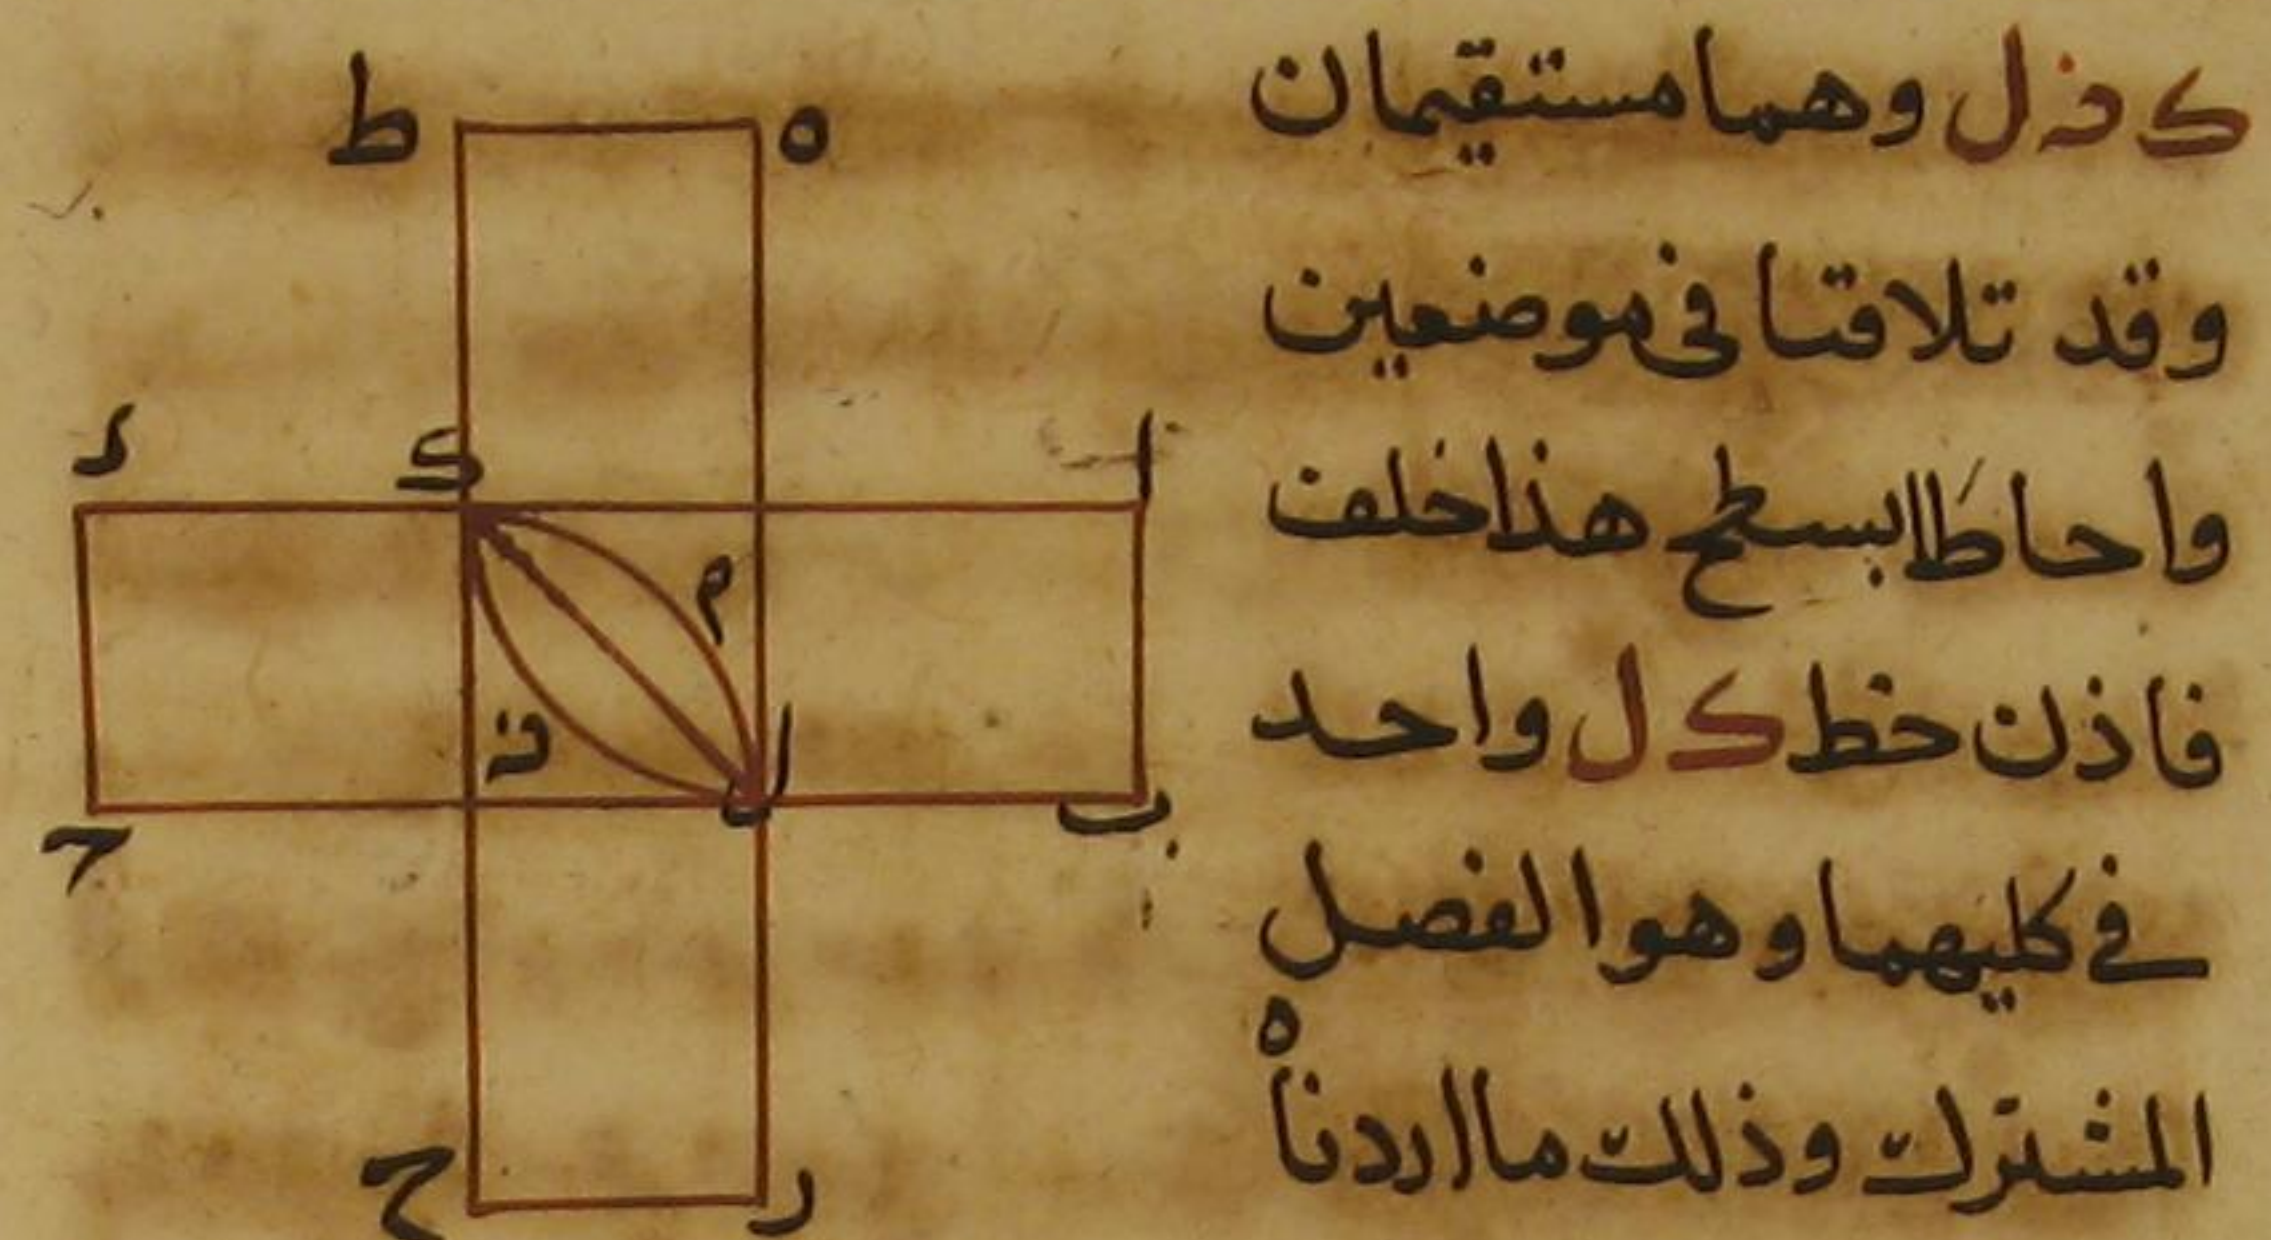 ك ن ل وهما مستقيمان
وقد تلاقتا فى موضعين
واحاطا بسطح هذا خلف
فاذن خط ك ل واحد
في كليهما وهو الفصل
المشترك وذلك ما اردناه
ط
ه
د
ك
ا
م
ن
ل
ب
ح
ح
ر